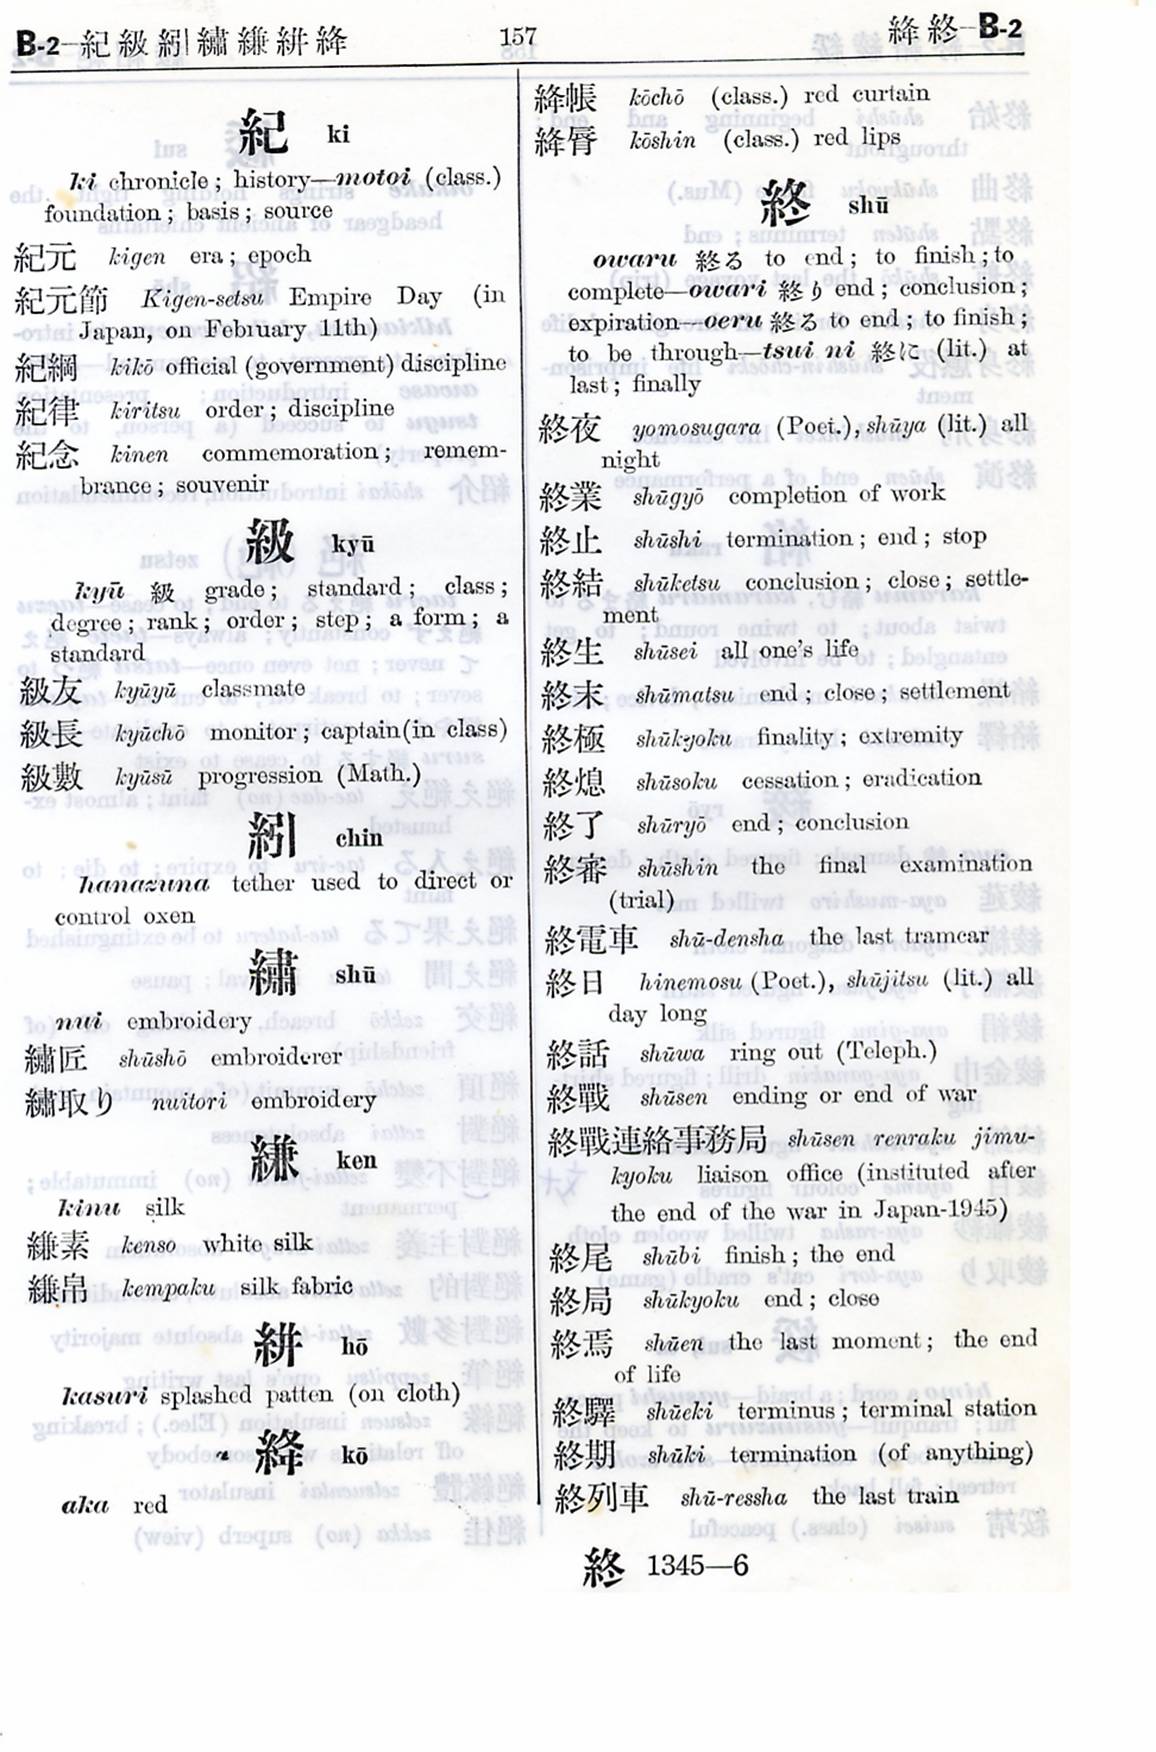 B-2—紀級紖繡縑絣絳
157
絳終—B-2
紀 ki
ki chronicle ; history—motoi (class.)
foundation ; basis ; source
紀元 kigen era ; epoch
紀元節 Kigen-setsu Empire Day (in
Japan, on February, 11th)
紀綱 kikō official (government) discipline
紀律 kiritsu order ; discipline
紀念 kinen commemoration ; remem-
brance ; souvenir
級 kyū
kyū 級 grade ; standard ; class ;
degree ; rank ; order ; step ; a form ; a
standard
級友 kyūyū classmate
級長 kyūchō monitor ; captain(in class)
級數 kyūsū progression (Math.)
紖 chin
hanazuna tether used to direct or
control oxen
繡 shū
nui embroidery
繡匠 shūshō embroiderer
繡取り nuitori embroidery
縑 ken
kinu silk
縑素 kenso white silk
縑帛 kempaku silk fabric
絣 hō
kasuri splashed patten (on cloth)
絳 kō
aka red
絳帳 kōchō (class.) red curtain
絳脣 kōshin (class.) red lips
終 shū
owaru 終る to end ; to finish ; to
complete—owari 終り end ; conclusion ;
expiration—oeru 終る to end ; to finish ;
to be through—tsui ni 終に (lit.) at
last ; finally
終夜 yomosugara (Poet.), shūya (lit.) all
night
終業 shūgyō completion of work
終止 shūshi termination ; end ; stop
終結 shūketsu conclusion ; close ; settle-
ment
終生 shūsei all one's life
終末 shūmatsu end ; close ; settlement
終極 shūkyoku finality ; extremity
終熄 shūsoku cessation ; eradication
終了 shūryō end ; conclusion
終審 shūshin the final examination
(trial)
終電車 shū-densha the last tramcar
終日 hinemosu (Poet.), shūjitsu (lit.) all
day long
終話 shūwa ring out (Teleph.)
終戰 shūsen ending or end of war
終戰連絡事務局 shūsen renraku jimu-
kyoku liaison office (instituted after
the end of the war in Japan-1945)
終尾 shūbi finish ; the end
終局 shūkyoku end ; close
終焉 shūen the last moment ; the end
of life
終驛 shūeki terminus ; terminal station
終期 shūki termination (of anything)
終列車 shū-ressha the last train
終 1345—6